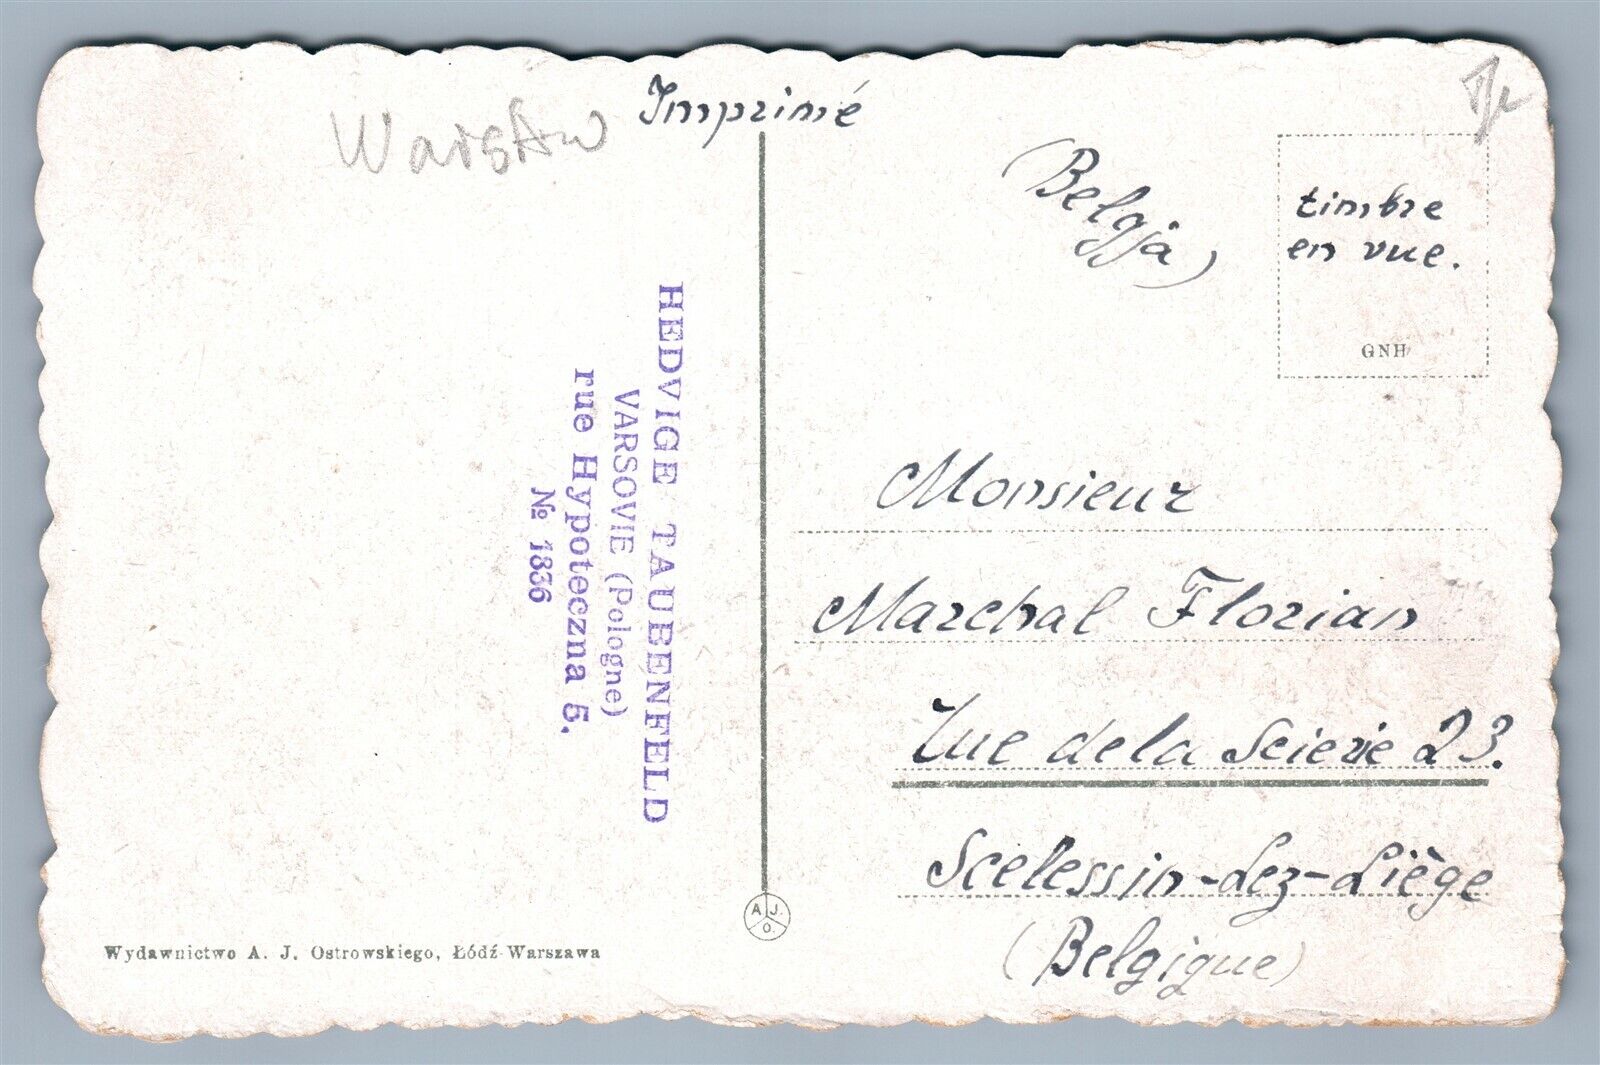 Warsaw
Imprimé
(Belgja)
timbre
en vue.
GNH
HEDVIGE TAUBENFELD
VARSOVIE (Pologne)
rue Hypoteczna 5.
№ 1336
Monsieur
Marchal Florian
rue de la Scierie 23.
Sclessin-Lez-Liège
(Belgique)
A. J. O.
Wydawnictwo A. J. Ostrowskiego, Łódź-Warszawa